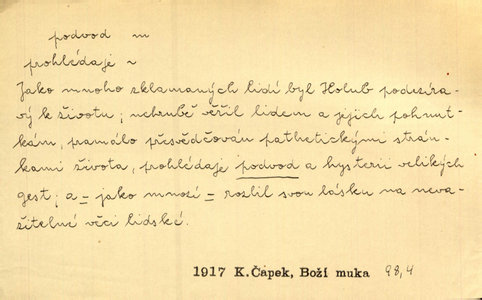 podvod m
prohlédaje ~
Jako mnoho zklamaných lidí byl Holub podezíra-
vý k životu; nehrubě věřil lidem a jejich pohnut-
kám, pramálo přesvědčován pathetickými strán-
kami života, prohlédaje podvod a hysterii velikých
gest; a = jako mnozí = rozlil svou lásku na neva-
žitelné věci lidské.
1917 K.Čapek, Boží muka 98,4